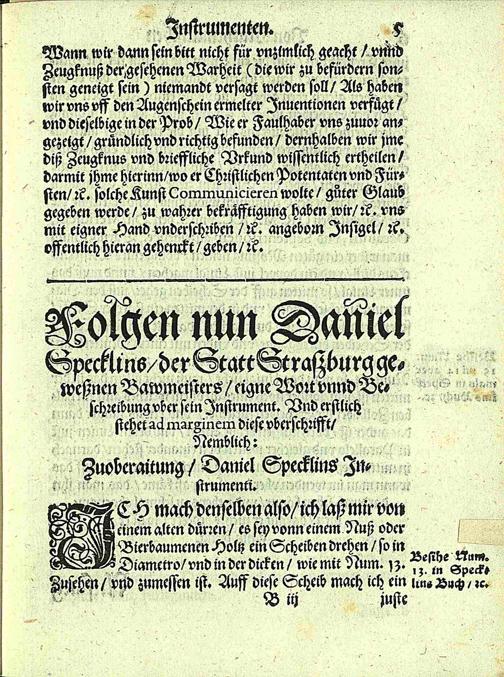 Instrumenten. 5
Wann wir dann sein bitt nicht für vnzimlich geacht / vnnd
Zeugknuß der gesehenen Warheit (die wir zu befürdern son-
sten geneigt sein) niemandt versagt werden soll / Als haben
wir vns vff den Augenschein ermelter Inuentionen verfügt /
vnd dieselbige in der Prob / Wie er Faulhaber vns zuuor an-
gezeigt / gründlich vnd richtig befunden / dernhalben wir jme
diß Zeugknus vnd brieffliche Vrkund wissentlich ertheilen /
darmit jhme hierinn / wo er Christlichen Potentaten vnd Für-
sten / ꝛc. solche Kunst Communicieren wolte / gůter Glaub
gegeben werde / zu wahrer bekräfftigung haben wir / ꝛc. vns
mit eigner Hand vnderschriben / ꝛc. angeborn Insigel / ꝛc.
offentlich hieran gehenckt / geben / ꝛc.
Folgen nun Daniel
Specklins / der Statt Straßburg ge-
weßnen Bawmeisters / eigne Wort vnnd Be-
schreibung vber sein Instrument. Vnd erstlich
stehet ad marginem diese vberschrifft /
Nemblich:
Zuoberaitung / Daniel Specklins In-
strumenti.
ICH mach denselben also / ich laß mir von
einem alten dürren / es sey vonn einem Nuß oder
Bierbaumenen Holtz ein Scheiben drehen / so in
Diametro / vnd in der dicken / wie mit Num. 13.
Zusehen / vnd zumessen ist. Auff diese Scheib mach ich ein
Besihe Num.
13. in Speck-
lins Buch / ꝛc.
B iij juste